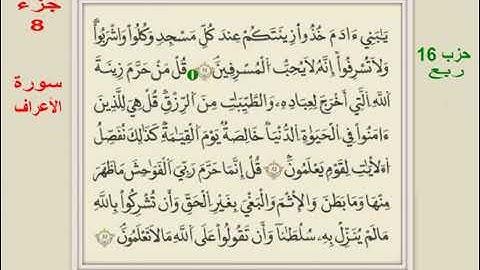 جزء
8
سورة
الأعراف
حزب 16
ربع
يَـٰبَنِىٓ ءَادَمَ خُذُوا۟ زِينَتَكُمْ عِندَ كُلِّ مَسْجِدٍ وَكُلُوا۟ وَٱشْرَبُوا۟
وَلَا تُسْرِفُوٓا۟ إِنَّهُۥ لَا يُحِبُّ ٱلْمُسْرِفِينَ قُلْ مَنْ حَرَّمَ زِينَةَ
ٱللَّهِ ٱلَّتِىٓ أَخْرَجَ لِعِبَادِهِۦ وَٱلطَّيِّبَـٰتِ مِنَ ٱلرِّزْقِ قُلْ هِىَ لِلَّذِينَ
ءَامَنُوا۟ فِى ٱلْحَيَوٰةِ ٱلدُّنْيَا خَالِصَةً يَوْمَ ٱلْقِيَـٰمَةِ كَذَٰلِكَ نُفَصِّلُ
ٱلْـَٔايَـٰتِ لِقَوْمٍ يَعْلَمُونَ قُلْ إِنَّمَا حَرَّمَ رَبِّىَ ٱلْفَوَٰحِشَ مَا ظَهَرَ
مِنْهَا وَمَا بَطَنَ وَٱلْإِثْمَ وَٱلْبَغْىَ بِغَيْرِ ٱلْحَقِّ وَأَن تُشْرِكُوا۟ بِٱللَّهِ
مَا لَمْ يُنَزِّلْ بِهِۦ سُلْطَـٰنًا وَأَن تَقُولُوا۟ عَلَى ٱللَّهِ مَا لَا تَعْلَمُونَ